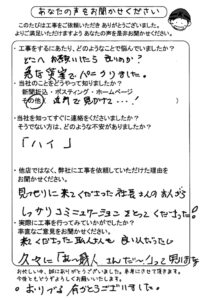 あなたの声をお聞かせください
このたびは工事をご依頼いただき ありがとうございました。
よりご満足いただけますよう あなたの声を是非お聞かせください。
・工事をするにあたり、どのようなことで悩んでいましたか?
どこへ お願いしたら 良いのか?
・当社のことをどうやって知りましたか?
新聞折込・ポスティング・ホームページ
その他(
・当社を知ってすぐに連絡をくださいましたか?
そうでない方は、どのような不安がありましたか?
「ハイ」
・他店ではなく、弊社に工事を依頼していただけた理由を
お聞かせください。
見つもりに来てくださった社長さんのお人がら
しっかりコミュニケーションをとってくださった。
・実際に工事を行ってみていかがでしたか?
率直なご意見をお聞かせください。
来てくださった
久々に「あ〜職人さんだ〜」って思いました
お忙しい中、誠にありがとうございました。参考にさせて頂きます。
今後ともどうぞよろしくお願いいたします。
ありがとうございました。